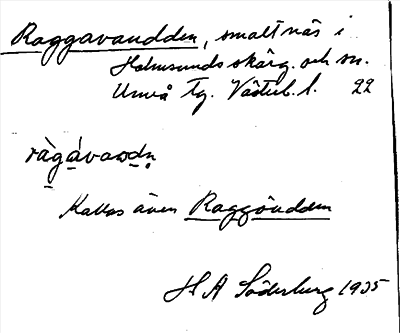 Raggavaudden, smalt näs i
Holmsunds skärg. och sn.
Umeå tg. Västerb. l. 22
ràgávaodn
Kallas även Raggöudden
H A Söderberg 1935